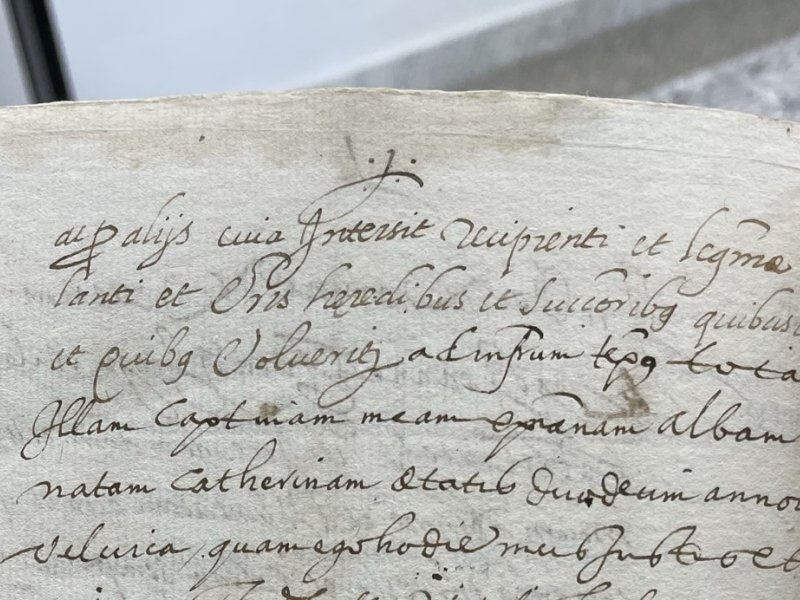 .j.
ac p alijs cuia Intersit recipienti et legme
lanti et Vris heredibus et succoribq quibus
et quibq Volueritj ad infrum tepq tota
Illam Captiuam meam xpanam albam
natam Catherinam etatis duodecim anno
velurca quam ego hodie meis Justis et